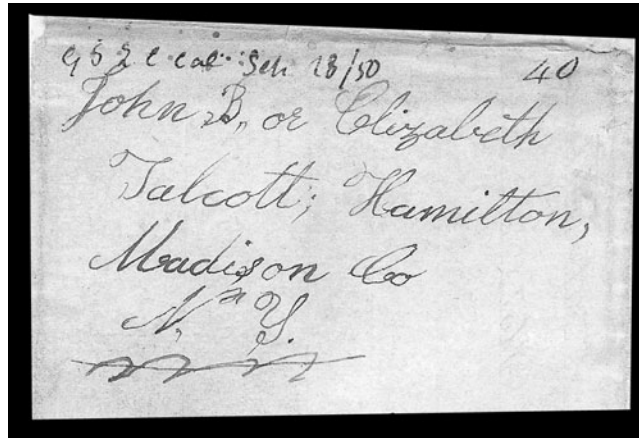 18/50 40
John B, or Elizabeth
Talcott, Hamilton,
Madison Co
N. Y.